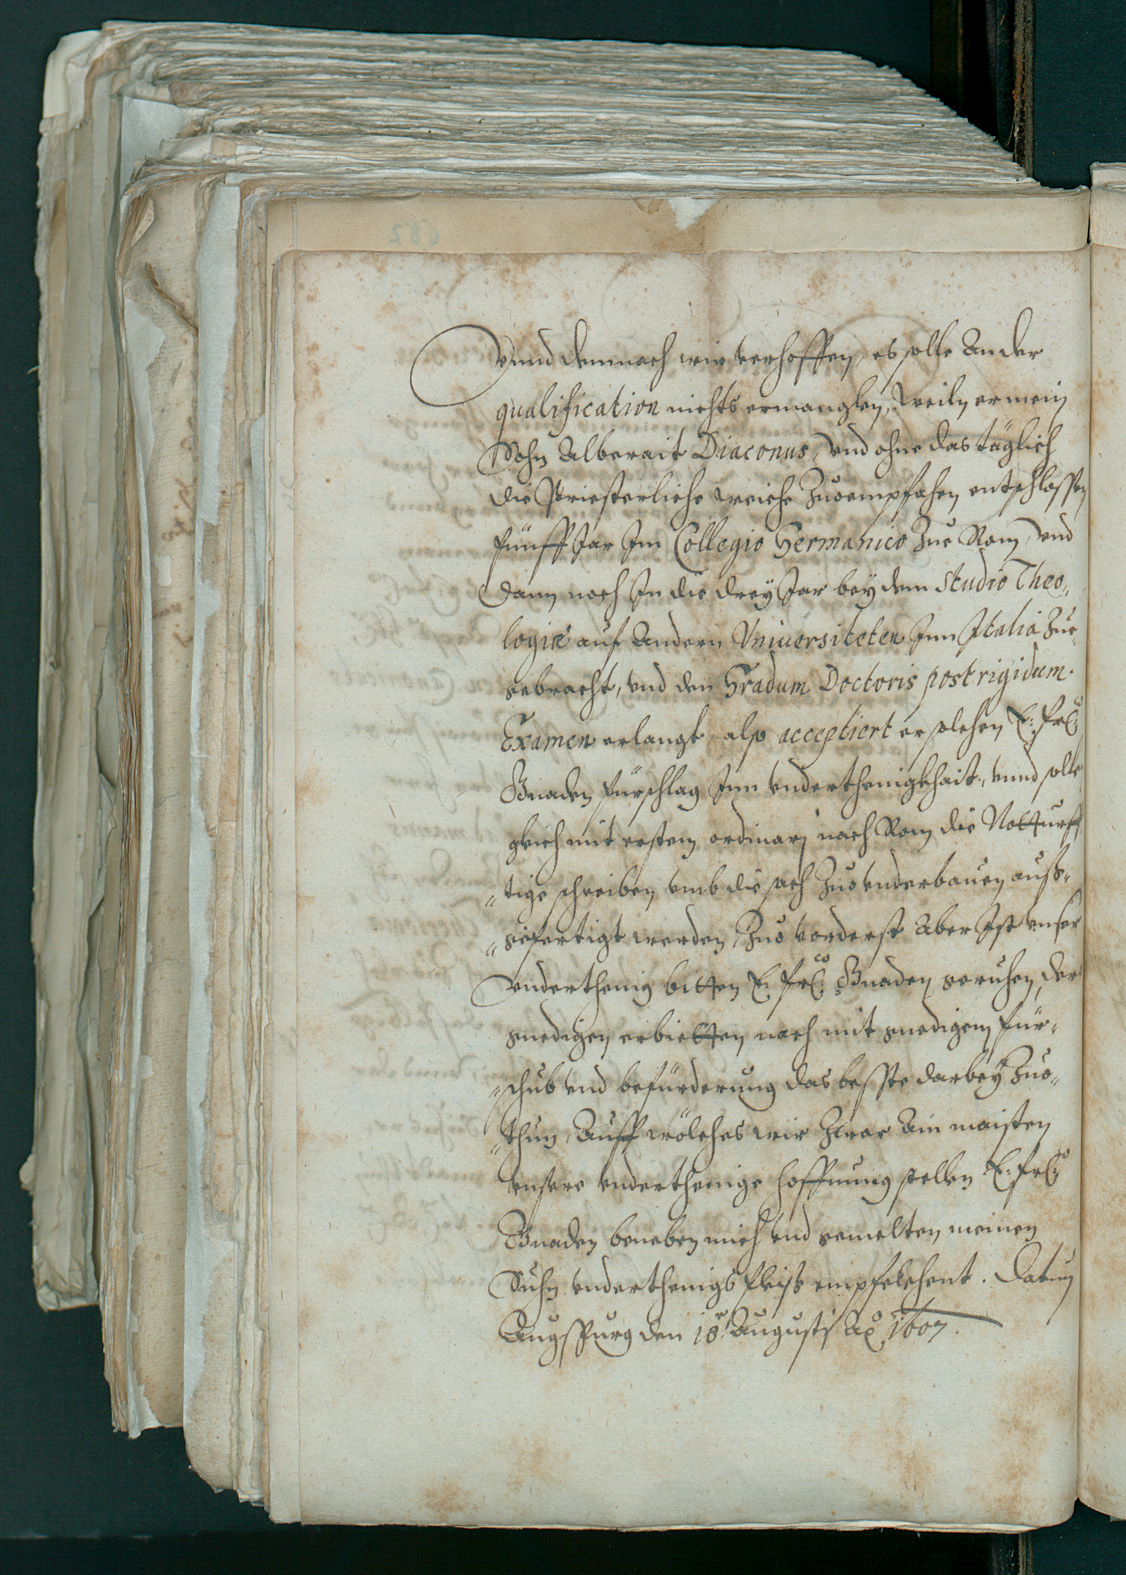 Vnnd demnach wir verhoffen, es solle An der
qualification nichts ermanglen, Weiln er mein
Sohn Alberait Diaconus, vnd ohne das täglich
die Priesterliche weiche Zuo empfahen entschlossen
fünff Jar Jm Collegio Germanico Zue Rom, vnd
dann noch Jn die drey Jar bey dem Studio Theo-
logiæ auf Andern Vniuersiteten Jnn Italia Zue-
gebracht, vnd den Gradum Doctoris post rigidum.
Examen erlangt, also acceptiert er solchen E: Frl:
Gnaden fürschlag Jnn vnderthenigkhait, vnnd solle
gleich mit erstem ordinarj nach Rom die Notturff
tige schreiben vmb die sach Zuo vnderbauen auß-
gefertigt werden, Zuo vorderst Aber Jst vnser
vnderthenig bitten E. Frl: Gnaden geruhen, der
gnedigen erbietten nach mit gnedigem für-
schub vnd befürderung das besste darbey Zuo-
thun, Auff wölches wir Zwar Am maisten
vnsere vnderthenige hoffnung stellen E: Frl:
Gnaden beneben mich vnd gemelten meinen
Suhn vnderthenigs fleiß empfelchent. Datum
Augspurg den 18. Augusti Ao 1607.